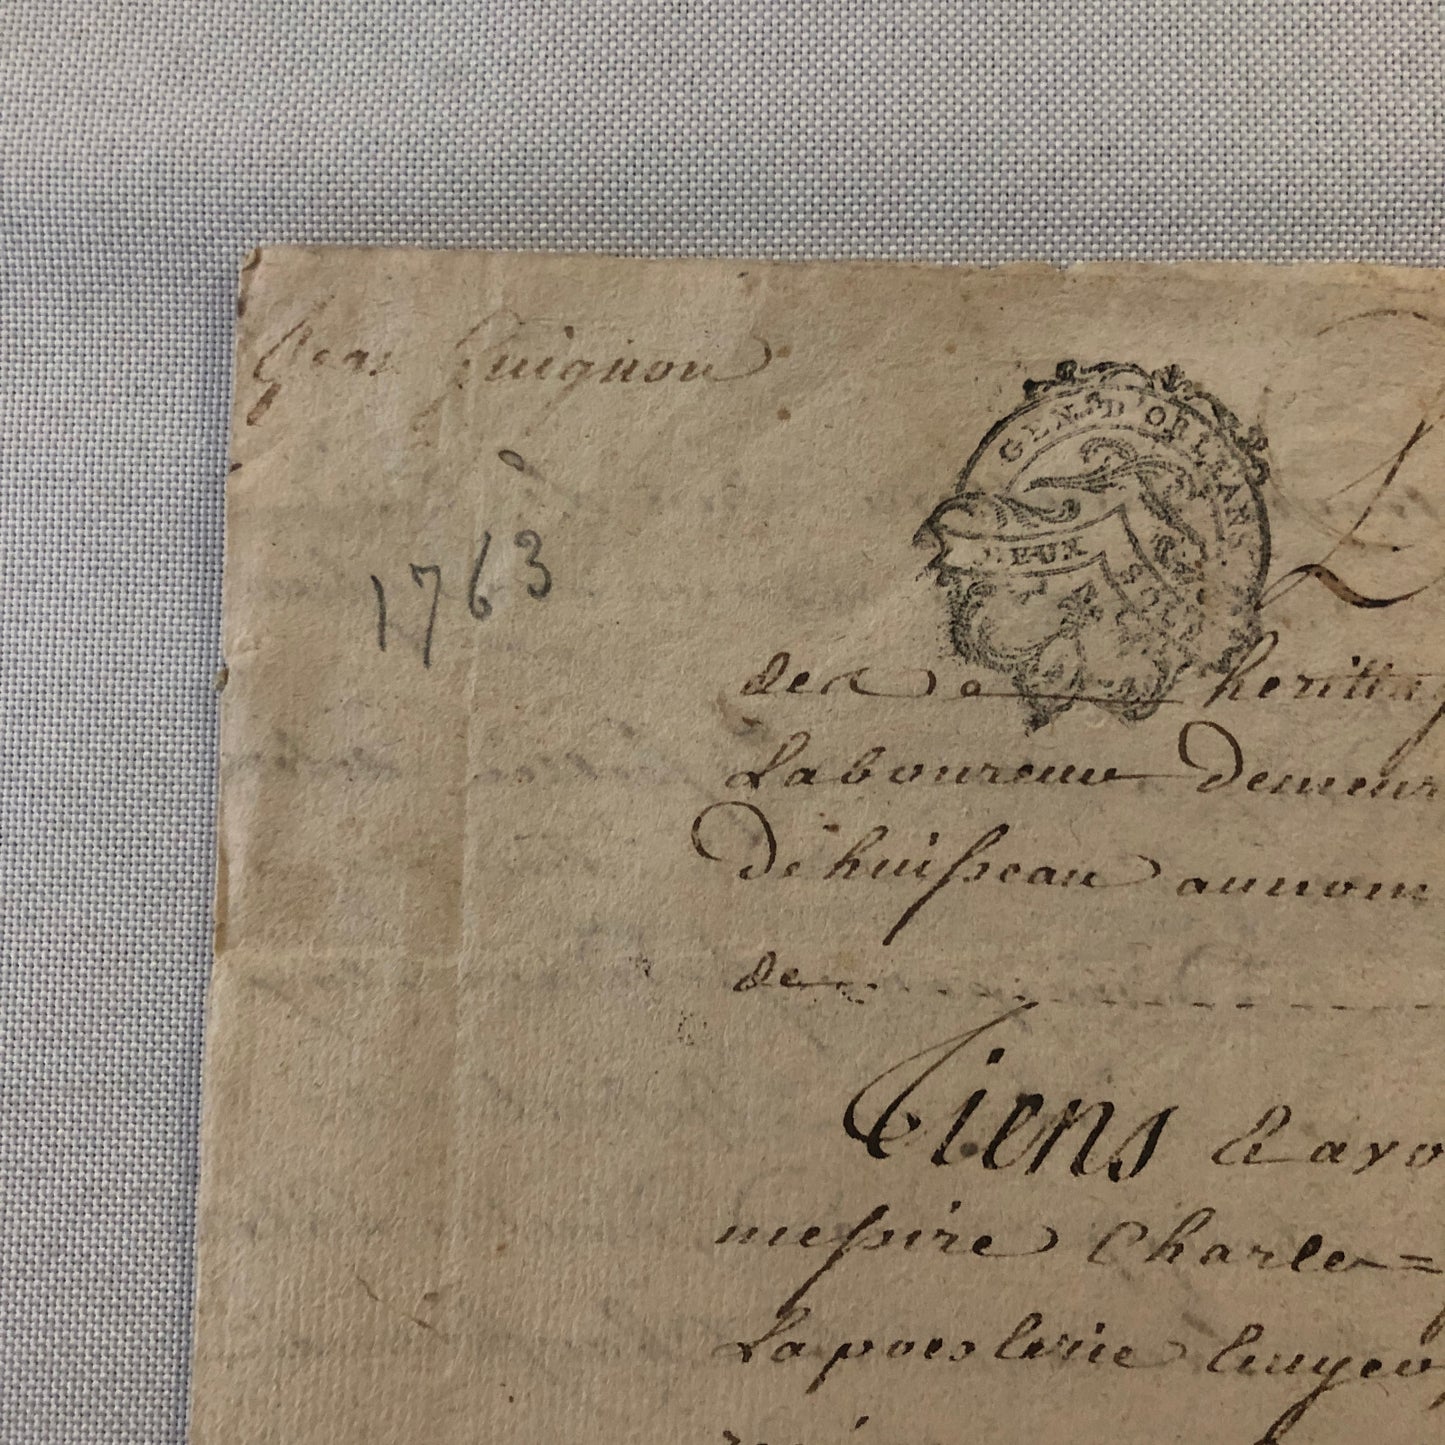 Jean Guignon
GEN. D'ORLEANS.
DEUX SOLS
1763
D
des heritta
Laboureur demeur
De huisseau aunom
de
Tiens & avo
messire Charles=
Lapoeslerie Ecuyer,